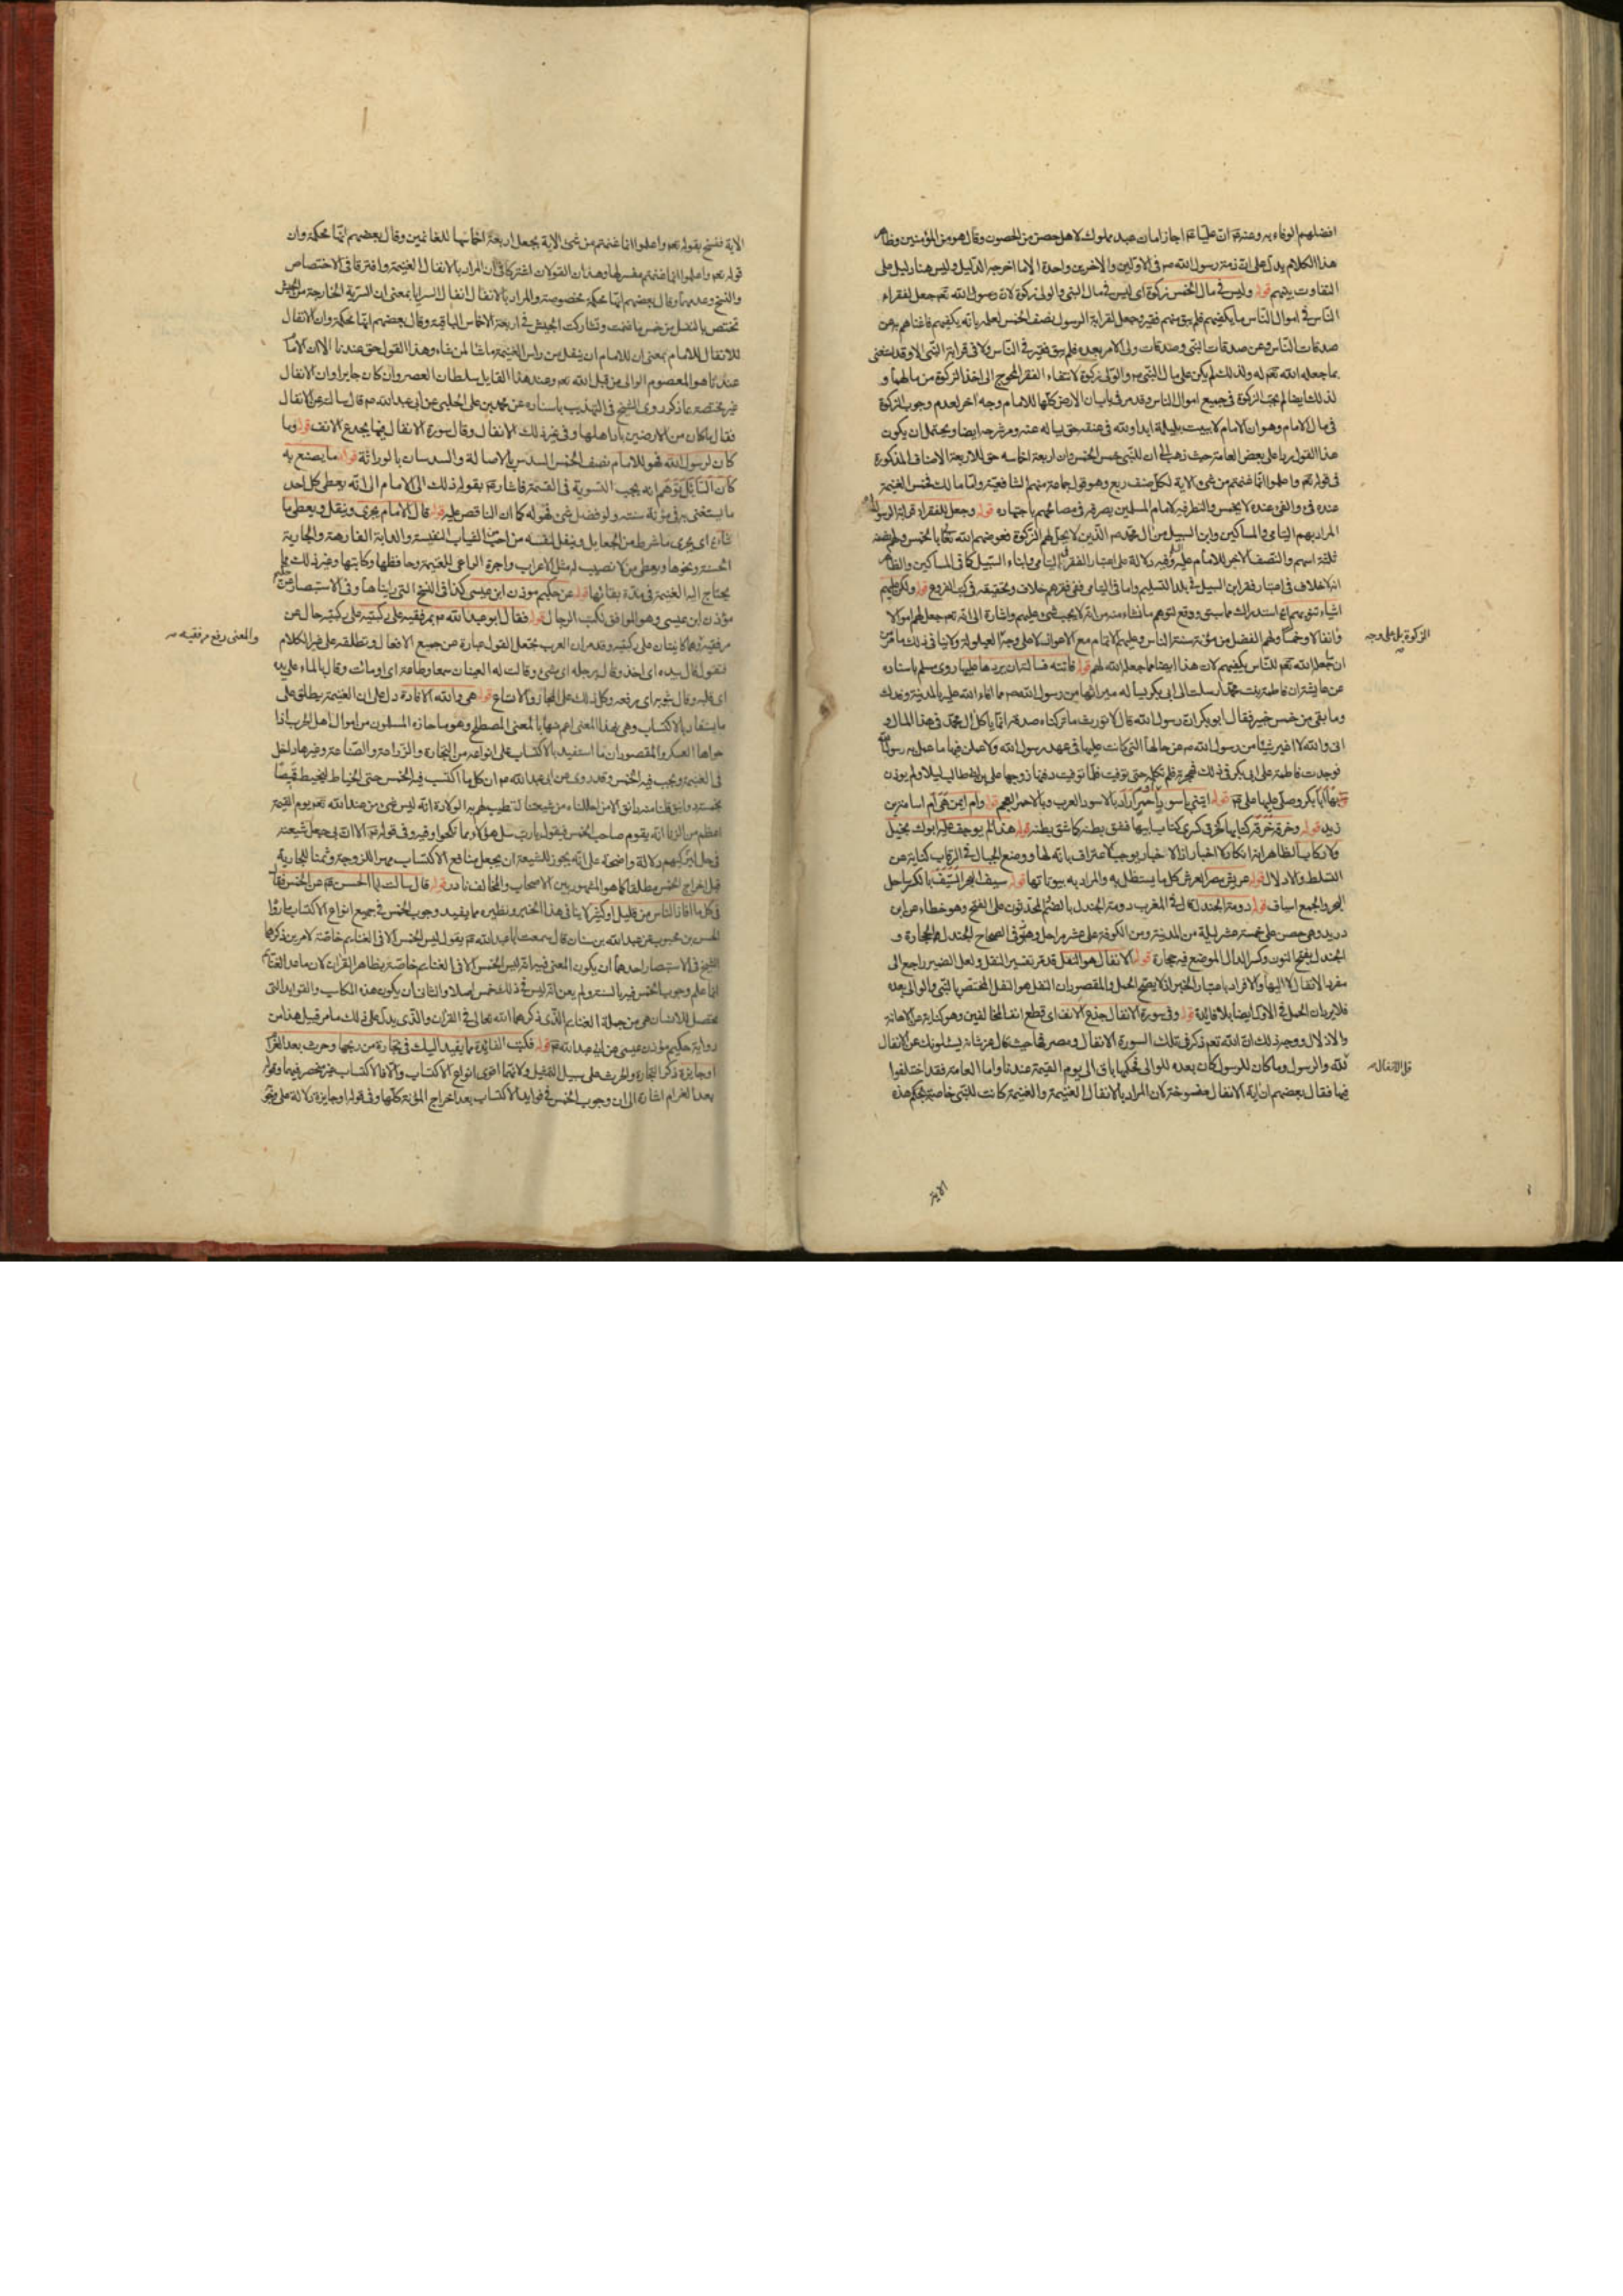 افضلهم الوفاء به وعنه ع ان عليا ع اجاز امان عبد مملوك لاهل حصن من الحصون وقال هو من المؤمنين وظاهر
هذا الكلام يدل على ان ذمة رسول الله ص في الاولين والاخرين واحدة الا ما اخرجه الدليل وليس هنا دليل على
التفاوت بينهم قوله وليس في مال الخمس زكوة اى ليس في مال النبى والولى زكوة لان رسول الله تعم جعل لفقراء
الناس في اموال الناس ما يكفيهم فلم يبق منهم فقير وجعل لقرابة الرسول نصف الخمس لعلمه بانه يكفيهم فاغناهم به عن
صدقات الناس وعن صدقات النبى وصدقات ولى الامر بعده فلم يبق فقير في الناس ولا فى قرابة النبى الا وقد استغنى
بما جعله الله تعم له ولذلك لم يكن على مال النبى ص والولى زكوة لانتفاء الفقر المحوج الى اخذ الزكوة من مالهما و
لذلك ايضا لم يجب الزكوة في جميع اموال الناس وقد مر في باب ان الارض كلها للامام وجه آخر لعدم وجوب الزكوة
في مال الامام وهو ان الامام لا يبيت بليلة ابدا ولله في عنقه حق يساله عنه ومر شرحه ايضا ويحتمل ان يكون
هذا القول ردا على بعض العامة حيث ذهب الى ان للنبى خمس الخمس وان اربعة اخماسه حق للاربعة الاصناف المذكورة
في قوله تعم واعلموا انما غنمتم من شئ الاية لكل صنف ربع وهو قول جماعة منهم الشافعية واما مالك فخمس الغنيمة
عنده فئ والفئ عنده لا يخمس والنظر فيه لامام المسلمين يصرفه في مصالحهم باجتهاده قوله وجعل للفقراء قرابة الرسول
المراد بهم اليتامى والمساكين وابن السبيل من آل محمد ص الذين لا يحل لهم الزكوة فعوضهم الله تعالى بالخمس ولهم نصفه
ثلثة اسهم والنصف الاخر للامام عليه وفيه دلالة على اعتبار الفقر في اليتامى وابناء السبيل كما في المساكين والظاهر
انه لا خلاف في اعتبار فقر ابن السبيل في بلد التسليم واما في اليتامى ففي فقرهم خلاف وتحقيقه في كتب الفروع قوله ولكن عليهم
اشياء تنوبهم استدراك مما سبق ووقع لتوهم ما نشاء منه من انه لا يجب شئ عليهم واشارة الى انه تعم جعل لهم اموالا
وانفالا وخمسا ولهم الفضل من مؤنة سنة الناس وعليهم الاتمام مع الاعواز
ان جعل الله تعم للناس يكفيهم لان هذا ايضا مما جعل الله لهم قوله فاتته فسالته ان يردها عليها روى مسلم باسناده
عن عايشة ان فاطمة بنت محمد ارسلت الى ابى بكر تساله ميراثها من رسول الله ص مما افاء الله عليه بالمدينة وفدك
وما بقى من خمس خيبر فقال ابو بكر ان رسول الله قال لا نورث ما تركناه صدقة انما ياكل آل محمد في هذا المال و
انى والله لا اغير شيئا من رسول الله ص عن حالها التى كانت عليها في عهد رسول الله ولاعملن فيها ما عمل به رسول الله
فوجدت فاطمة على ابى بكر في ذلك فهجرته فلم تكلمه حتى توفيت فلما توفيت دفنها زوجها على بن ابى طالب ليلا ولم يوذن
بها ابا بكر وصلى عليها على ع قوله ايتنى باسود او احمر اراد بالاسود العرب وبالاحمر العجم قوله وام ايمن هى ام اسامة بن
زيد قوله وخرقه خرقه كتابها كخرق كسرى كتاب فشق بطنه كما شق بطنه قوله هذا لم يوجف عليه ابوك بخيل
ولا ركاب الظاهر انه انكار لا اخبار اذ الاخبار يوجب الاعتراف بانه لها ووضع الحبال في الرقاب كناية عن
التسلط والاذلال قوله عريش مصر العرش كل ما يستظل به والمراد به بيوتاتها قوله سيف البحر السيف بالكسر ساحل
البحر والجمع اسياف قوله دومة الجندل قال في المغرب دومة الجندل بالضم والمحدثون على الفتح وهو خطاء عن ابن
دريد وهى حصن على خمسة عشر ليلة من المدينة ومن الكوفة على عشر مراحل وفي الصحاح الجندل الحجارة و
الجندل بفتح النون وكسر الدال الموضع فيه حجارة قوله الانفال هو النفل قد مر تفسير النفل ولعل الضمير راجع الى
مفرد الانفال لا اليها والافراد باعتبار الخبر اذ لا يصح الحمل والمقصود ان النفل هو النفل المختص بالنبى والوالى بعده
فلا يرد ان الحمل في الاول ايضا بلا فايدة قوله وفي سورة الانفال جذع الانف اى قطع انف المخالفين وهو كناية عن الاهانة
والاذلال ووجه ذلك ان الله تعم ذكر في تلك السورة الانفال ومصرفها حيث قال عز شانه يسئلونك عن الانفال
لله والرسول وما كان للرسول كان بعده للوالى فحكمها باق الى يوم القيمة عندنا واما العامة فقد اختلفوا
فيها فقال بعضهم ان اية الانفال منسوخة لان المراد بالانفال الغنيمة والغنيمة كانت للنبى خاصة بحكم هذه
الزكوة بل على وجه
قل الانفال ص
الاية
الاية فنسخ بقوله تعم واعلموا انما غنمتم من شئ الاية بجعل اربعة اخماسها للغانمين وقال بعضهم انها محكمة وان
قوله تعم واعلموا انما غنمتم مفسر لها وهذان القولان اشتركا في ان المراد بالانفال الغنيمة وافترقا في الاختصاص
والنسخ وعدمها وقال بعضهم انها محكمة مخصوصة والمراد بالانفال انفال السرايا بمعنى ان السرية الخارجة من الجيش
تختص بالنفل من خمس ما غنمت وتشاركت الجيش في اربعة الاخماس الباقية وقال بعضهم انها محكمة وان الانفال
للانفال للامام بمعنى ان للامام ان ينفل من راس الغنيمة ما شاء لمن شاء وهذا القول حق عندنا الا ان الامام
عندنا هو المعصوم الوالى من قبل الله تعم وعند هذا القايل سلطان العصر وان كان جايرا وان الانفال
غير مختصة بما ذكر روى الشيخ في التهذيب باسناده عن محمد بن على الحلبى عن ابى عبد الله ع قال سالته عن الانفال
فقال ما كان من الارضين باد اهلها وفي غير ذلك الانفال وقال سورة الانفال فيها يجدع الانف قوله وما
كان لرسول الله فهو للامام نصف الخمس السدس بالاصالة والسدسان بالوراثة قوله ما يصنع به
كان السائل توهم انه يجب التسوية في القسمة فاشار ع بقوله ذلك الى الامام الى انه يعطى كل احد
ما يستغنى به في مؤنة سنته ولو فضل شئ فهو له كما ان الناقص عليه قوله قال الامام يجرى وينفل ويعطى ما
شاء اى يجرى ما شرط من الجعايل وينفل لنفسه من احب الثياب النفيسة والدابة الفارهة والجارية
الحسنة ونحوها ويعطى من لا نصيب له مثل الاعراب واجرة الراعى للغنيمة وحافظها وكاتبها وغير ذلك مما
يحتاج اليه الغنيمة في مدة بقائها قوله عن حكيم موذن ابن عيسى كذا في النسخ التى رايناها وفي الاستبصار عن حكيم
مؤذن ابن عيسى وهو الموافق لكتب الرجال قوله فقال ابو عبد الله ع بمرفقيه على ركبتيه على ركبتيه حال من
مرفقيه وهما كاينتان على ركبتيه وقد مر ان العرب تجعل القول عبارة عن جميع الافعال وتطلقه على غير الكلام
فتقول قال بيده اى اخذ وقال برجله اى مشى وقالت له العينان سمعا وطاعة اى اومات وقال بالماء على يده
اى قلبه وقال بثوبه اى رفعه وكل ذلك على المجاز والاتساع قوله هى والله الافادة دل على ان الغنيمة يطلق على
ما يستفاد بالاكتساب وهى بهذا المعنى اعم منها بالمعنى المصطلح وهو ما حازه المسلمون من اموال اهل الحرب اذا
حواها العسكر والمقصود ان ما استفيد بالاكتساب على انواعه من التجارة والزراعة والصناعة وغيرها داخل
في الغنيمة ويجب فيه الخمس وقد روى عن ابى عبد الله ع ان كل ما اكتسب فيه الخمس حتى الخياط ليخيط قميصا
بخمسة دوانيق فلنا منه دانق الا من احللناه من شيعتنا لتطيب لهم به الولادة انه ليس شئ من عند الله تعم يوم القيمة
اعظم من الزنا انه يقوم صاحب الخمس فيقول يارب سل هؤلاء بما نكحوا وفيه وفي قوله ع الا ان ابى جعل شيعته
في حل ليزكيهم دلالة واضحة على انه يجوز للشيعة ان يجعل منافع الاكتساب مهرا للزوجة وثمنا للجارية
قبل اخراج الخمس مطلقا كما هو المشهور بين الاصحاب والمخالف نادر قوله قال سالت ابا الحسن ع عن الخمس فقال
في كل ما افاد الناس من قليل او كثير لا ينافى هذا الخبر ونظيره مما يفيد وجوب الخمس في جميع انواع الاكتساب ما رواه
الحسن بن محبوب عن عبد الله بن سنان قال سمعت ابا عبد الله ع يقول ليس الخمس الا في الغنايم خاصة لامرين ذكرهما
الشيخ في الاستبصار احدهما ان يكون المعنى فيه انه ليس الخمس الا في الغنايم خاصة بظاهر القران لان ما عدا الغنايم
انما علم وجوب الخمس فيه بالسنة ولم يعن انه ليس في ذلك خمس اصلا والثانى ان يكون هذه المكاسب والفوايد التى
تحصل للانسان هى من جملة الغنايم الذى ذكرها الله تعالى في القران والذى يدل على ذلك ما مر قبيل هذا من
رواية حكيم مؤذن عيسى عن ابى عبد الله ع قوله فكتب الفائدة مما يفيد اليك في تجارة من ربحها وحرث بعد الغرام
او جايزة ذكر التجارة والحرث على سبيل التمثيل ولانهما اقوى انواع الاكتساب والا فالاكتساب غير منحصر فيهما وقوله
بعد الغرام اشارة الى ان وجوب الخمس في فوايد الاكتساب بعد اخراج المؤنة كلها وفي قوله او جايزة دلالة على وجوب
والمعنى رفع مرفقيه ص